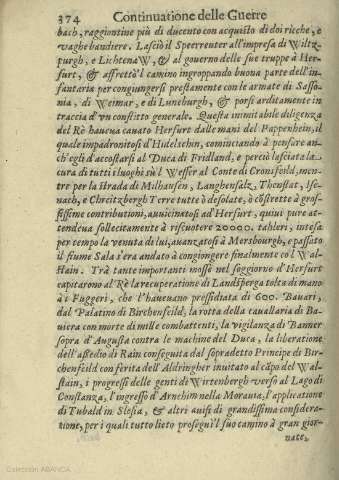 374 Continuatione delle Guerre
bach, raggiontine più di ducento con acquisto di doi ricche, e
vaghe bandiere. Lasciò il Speerreuter all'impresa di Wiltz-
purgh, e LichtenaW, & al governo delle sue truppe à Her-
furt, & affrettò'l camino ingroppando buona parte dell'in-
fantaria per congiungersi prestamente con le armate di Sasso-
nia, di Weimar, e di Luneburgh, & porsi arditamente in
traccia d'vn conflitto generale. Questa inimitabile diligenza
del Rè haueua cauato Herfurt dalle mani del Pappenhein, il
quale impadronitosi d'Hidelschin, cominciando à pensare an-
ch'egli d'accostarsi al Duca di Fridland, e perciò lasciata la
cura di tutti i luoghi sù'l Wesser al Conte di Cronsfeild, men-
tre per la strada di Milhausen, Langhensalz, Thenstat, Ise-
nach, e Chreitzbergh Terre tutte ò desolate, ò costrette à gros-
sissime contributioni, auuicinatosi ad Herfurt, quiui pure at-
tendeua sollecitamente à riscuotere 20000. tahleri, intesa
per tempo la venuta di lui, auanzatosi à Mersbourgh, e passato
il fiume Sala s'era andato à congiongere finalmente col Wal-
stain. Trà tante importanti mosse nel soggiorno d'Herfurt
capitarono al Rè la recuperatione di Landsperga tolta di mano
à i Fuggeri, che l'haueuano pressidiata di 600. Bauari,
dal Palatino di Birchenfeild, la rotta della cauallaria di Ba-
uiera con morte di mille combattenti, la vigilanza di Banner
sopra d'Augusta contra le machine del Duca, la liberatione
dell'assedio di Rain conseguita dal sopradetto Principe di Bir-
chenfeild con ferita dell'Aldringher inuitato al cãpo del Wal-
stain, i progressi delle genti di Wirtenbergh verso al Lago di
Constanza, l'ingresso d'Arnehim nella Morauia, l'applicatione
di Tubald in Slesia, & altri auisi di grandissima considera-
tione, per i quali tutto lieto proseguì'l suo camino à gran gior-
nate,
Colección ABANCA